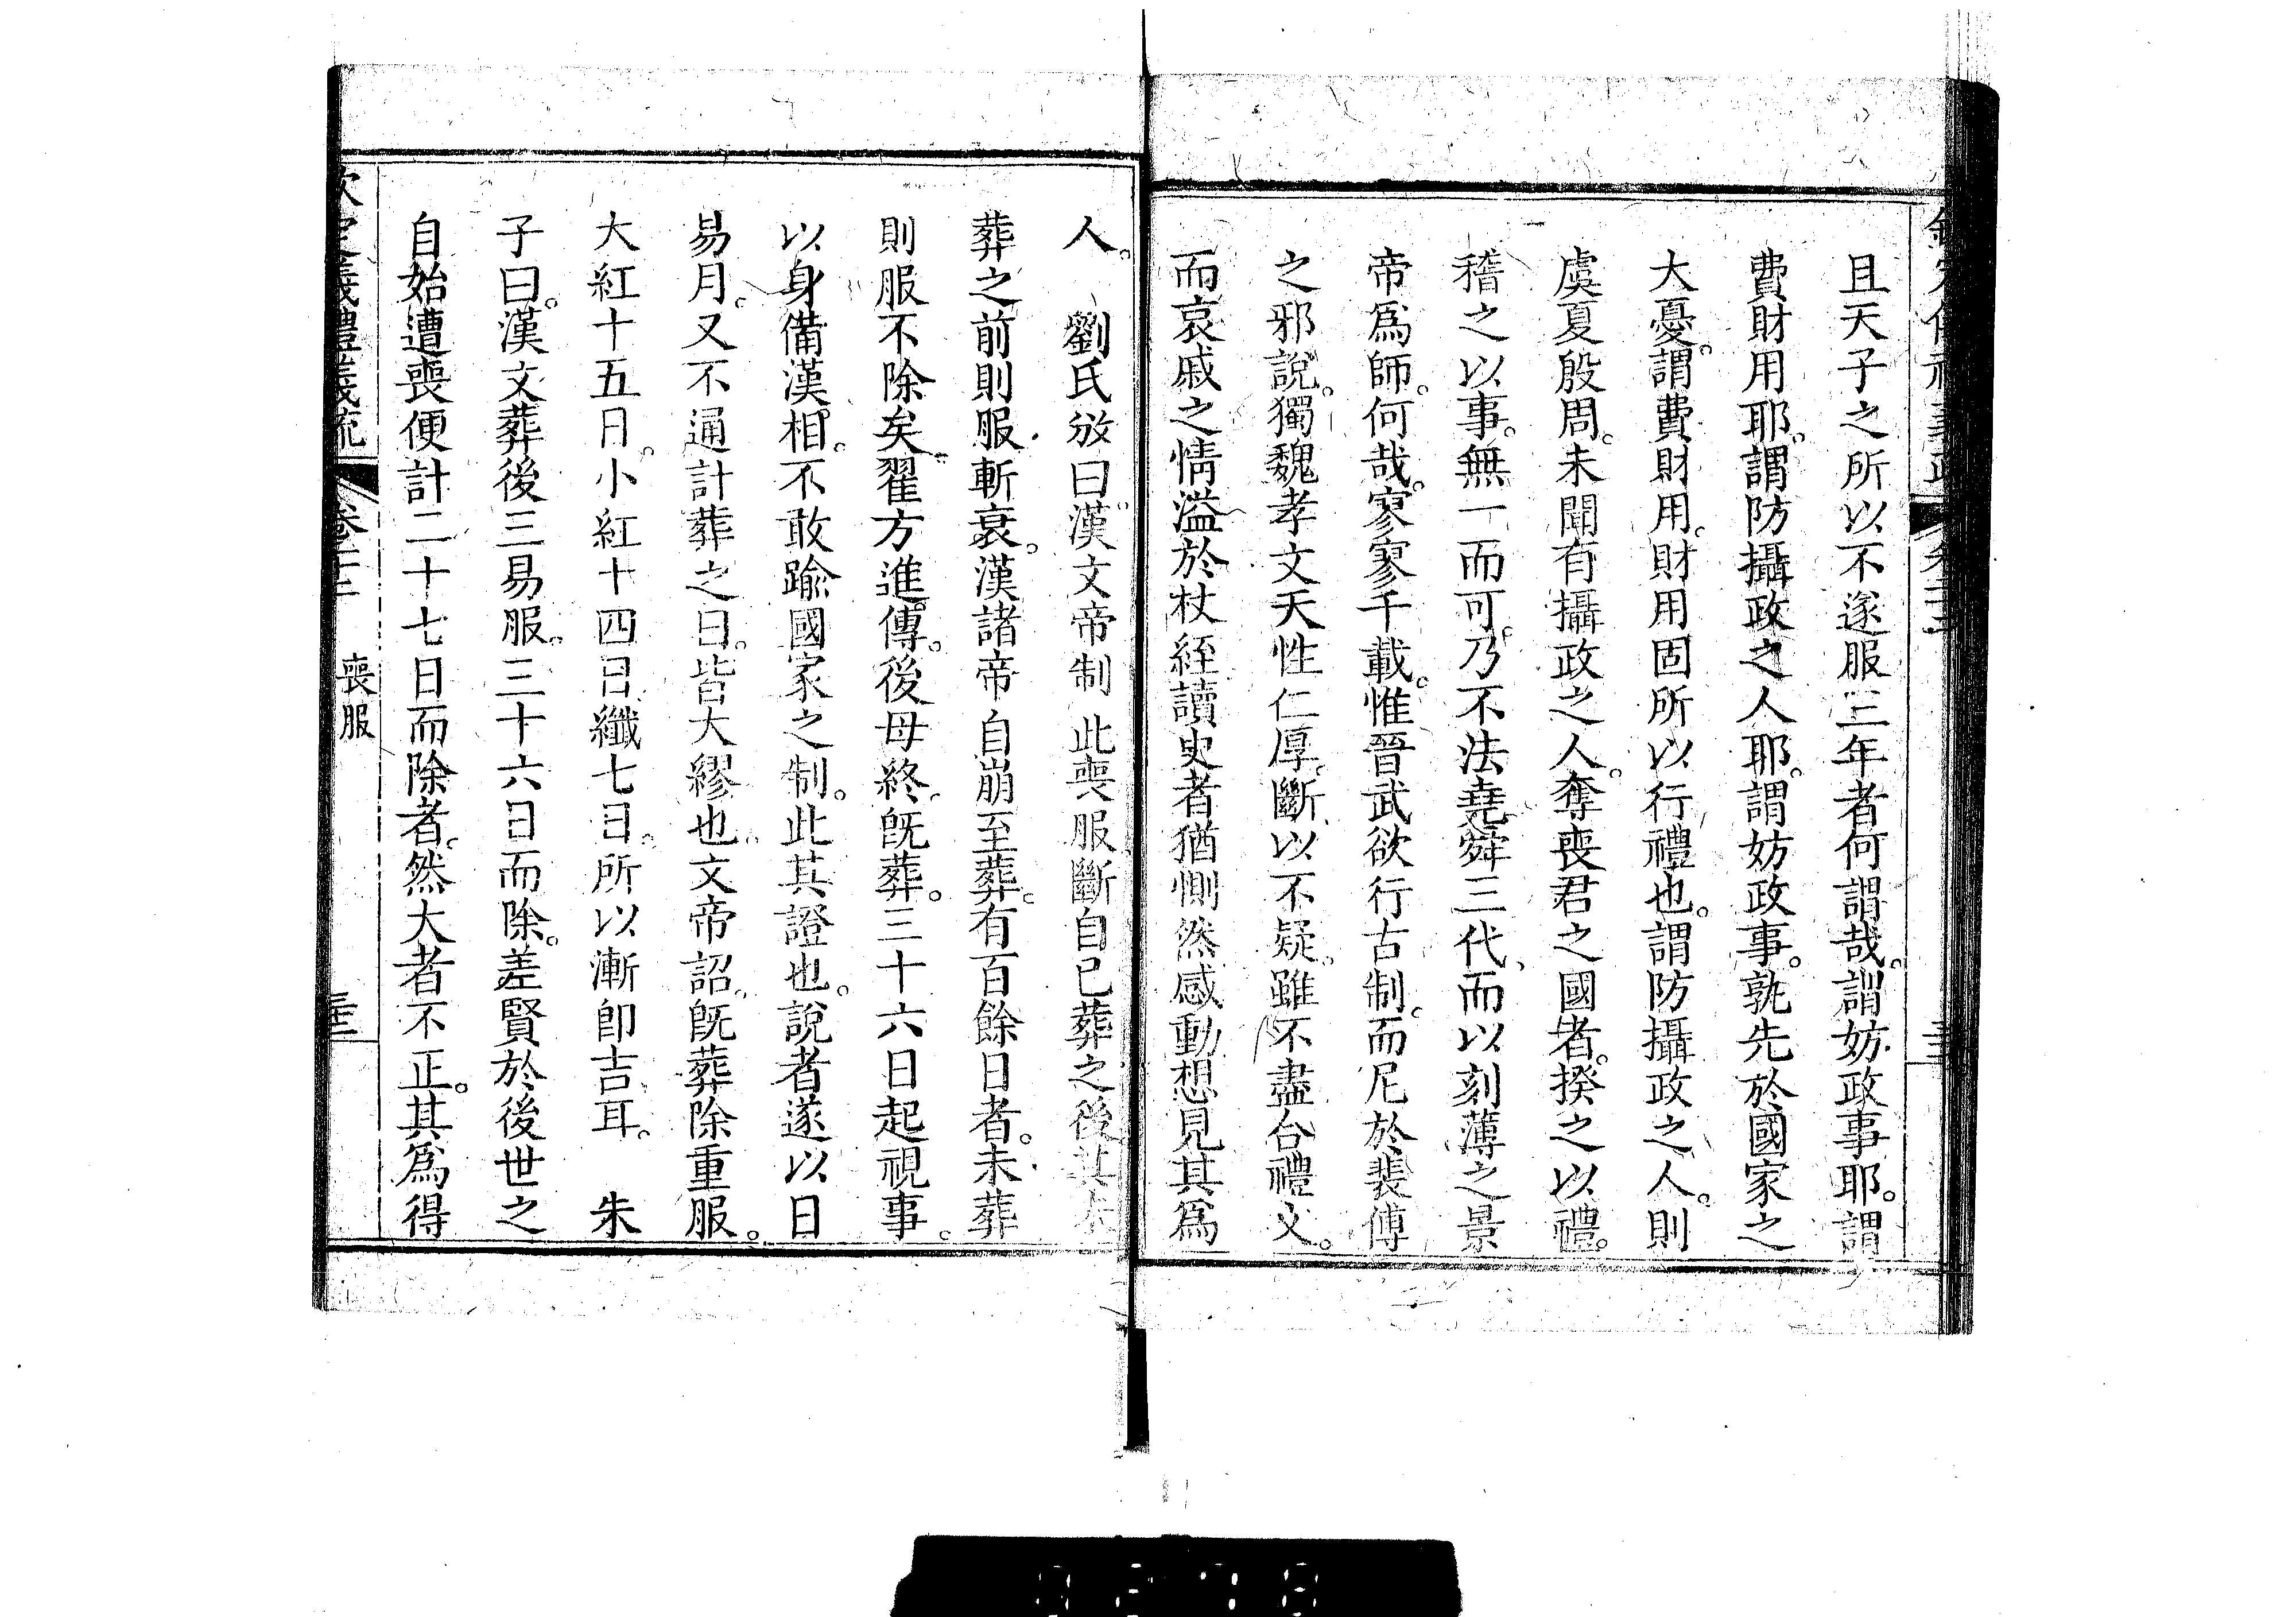 且天子之所以不遂服三年者何謂哉。謂妨政事耶。謂
費財用耶。謂防攝政之人耶。謂妨政事。孰先於國家之
大憂。謂費財用。財用固所以行禮也。謂防攝政之人。則
虞夏殷周。未聞有攝政之人。奪喪君之國者。揆之以禮。
稽之以事。無一而可。乃不法堯舜三代、而以刻薄之景
帝爲師。何哉。寥寥千載。惟晉武欲行古制。而尼於裴傅
之邪說。獨魏孝文天性仁厚。斷以不疑。雖不盡合禮文。
而哀戚之情溢於杖絰讀史者猶惻然感動想見其爲
人。 劉氏攽曰。漢文帝制此喪服斷自已葬之後其未
葬之前則服斬衰。漢諸帝自崩至葬。有百餘日者。未葬
則服不除矣。翟方進傳。後母終。旣葬。三十六日起視事。
以身備漢相。不敢踰國家之制。此其證也。說者遂以日
易月。又不通計葬之日。皆大繆也。文帝詔。旣葬除重服。
大紅十五日。小紅十四日。纖七日。所以漸卽吉耳。 朱
子曰。漢文葬後三易服。三十六日而除。差賢於後世之
自始遭喪便計二十七日而除者。然大者不正。其爲得
欽定義禮義疏 卷二十二 喪服